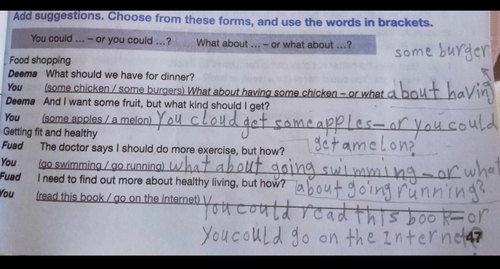 Add suggestions. Choose from these forms, and use the words in brackets.
You could ... – or you could ...? What about ... – or what about ...?
some burger
Food shopping
Deema What should we have for dinner?
You (some chicken / some burgers) What about having some chicken – or what about having
Deema And I want some fruit, but what kind should I get?
You (some apples / a melon) You cloud get some apples – or you could
get a melon?
Getting fit and healthy
Fuad The doctor says I should do more exercise, but how?
You (go swimming / go running) what about going swimming – or what
about going running?
Fuad I need to find out more about healthy living, but how?
You (read this book / go on the internet) You could read this book – or
You could go on the Internet?
47